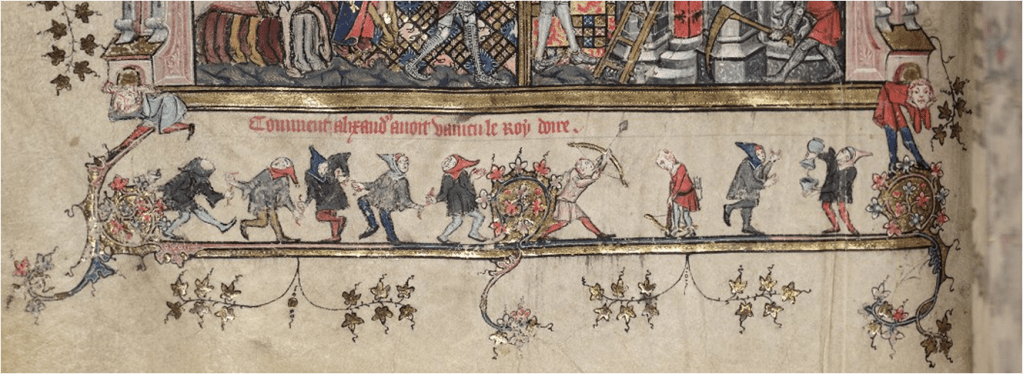 Comment alixandʳ auoit vaincu le Roy daire.